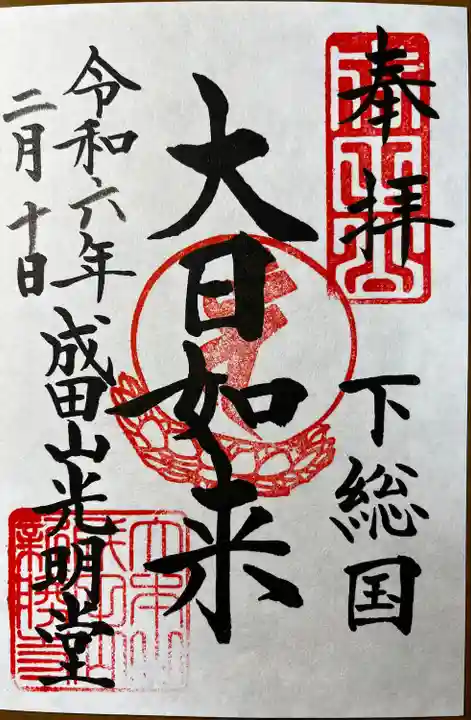 奉拝
下総国
大日如来
令和六年
二月十日
成田山光明堂